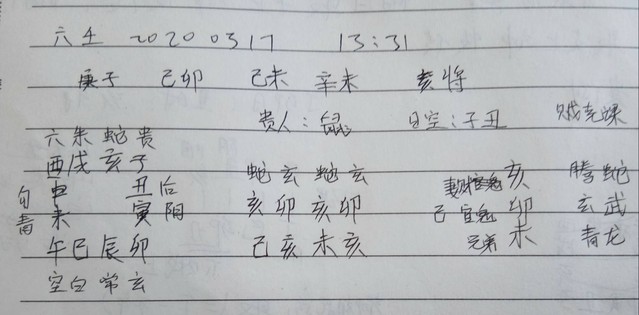 六壬 20200317 13:31
庚子 己卯 己未 辛未 亥将
贵人:鼠 日空:子丑 贼克课
六朱蛇贵
酉戌亥子 蛇玄蛇玄 亥 腾蛇
勾申 丑后 亥卯亥卯 己官鬼卯 玄武
青未 寅阴 己亥未亥 兄弟未 青龙
午巳辰卯
空白常玄